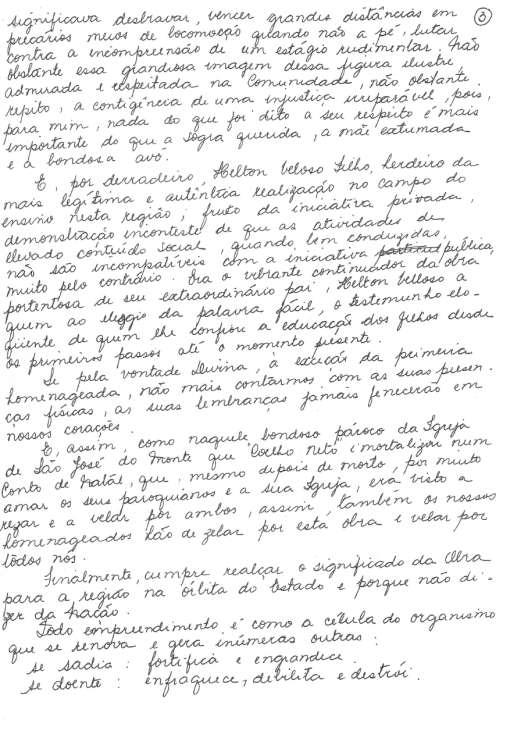 ③
significava desbravar, vencer grandes distâncias em
precários meios de locomoção quando não a pé, lutar
contra a incompreensão de um estágio rudimentar. Não
obstante essa grandiosa imagem dessa figura ilustre
admirada e respeitada na Comunidade, não obstante
repito, a contigência de uma injustica irreparável, pois,
para mim, nada do que foi dito a seu respeito é mais
importante do que a sogra querida, a mãe extumada
e a bondosa avó.
E, por derradeiro, Helton Veloso Filho, herdeiro da
mais legítima e autêntica realização no campo do
ensino nesta região, fruto da iniciativa privada,
demonstração inconteste de que as atividades de
elevado conteúdo social, quando bem conduzidas,
não são incompatíveis com a iniciativa publica,
muito pelo contrário. Era o vibrante continuador da obra
portentosa de seu extraordinário pai, Helton Velloso a
quem ao elogio da palavra fácil, o testemunho elo-
qüente de quem lhe confiou a educação dos filhos desde
os primeiros passos até o momento presente.
Se pela vontade Divina, à exceção da primeira
homenageada, não mais contarmos com as suas presen-
ças físicas, as suas lembranças jamais fenecerão em
nossos corações.
E, assim, como naquele bondoso pároco da Igreja
de São José do Monte que "Coelho Neto" imortalizou num
Conto de Natal, que, mesmo depois de morto, por muito
amar os seus paroquianos e a sua Igreja, era visto a
rezar e a velar por ambos, assim, também os nossos
homenageados hão de zelar por esta obra e velar por
todos nós.
Finalmente, cumpre realçar o significado da Obra
para a região na órbita do Estado e porque não di-
zer da Nação.
Todo empreendimento é como a célula do organismo
que se renova e gera inúmeras outras:
se sadia: fortifica e engrandece.
se doente: enfraquece, debilita e destrói.